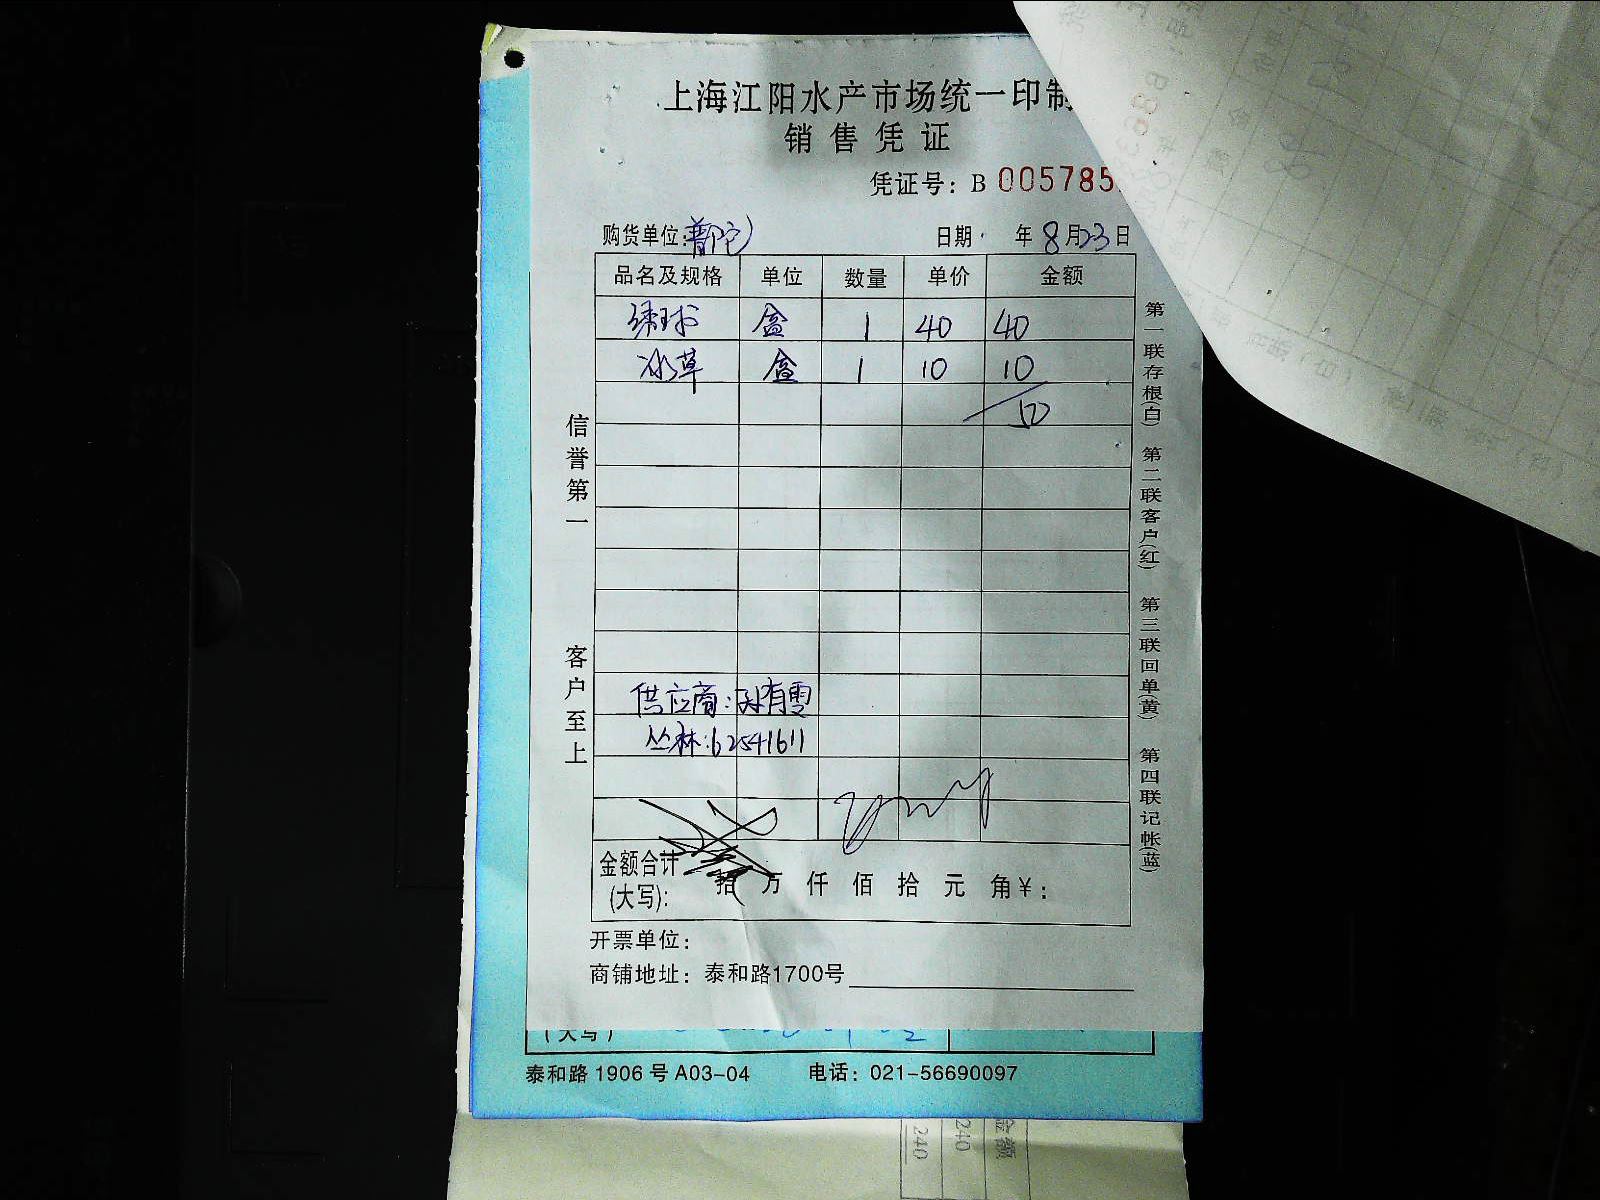 上海江阳水产市场统一印制
销售凭证
凭证号：B 005785
购货单位：普陀
日期 年 8月23日
品名及规格 单位 数量 单价 金额
绣球 盒 1 40 40
冰草 盒 1 10 10
50
信誉第一
客户至上
供应商：孙有雪
丛林：62541611
金额合计
(大写)： 拾 万 仟 佰 拾 元 角 ￥：
开票单位：
商铺地址：泰和路1700号
第一联存根(白) 第二联客户(红) 第三联回单(黄) 第四联记帐(蓝)
(大写)
泰和路 1906 号 A03-04 电话：021-56690097
金额
240
240